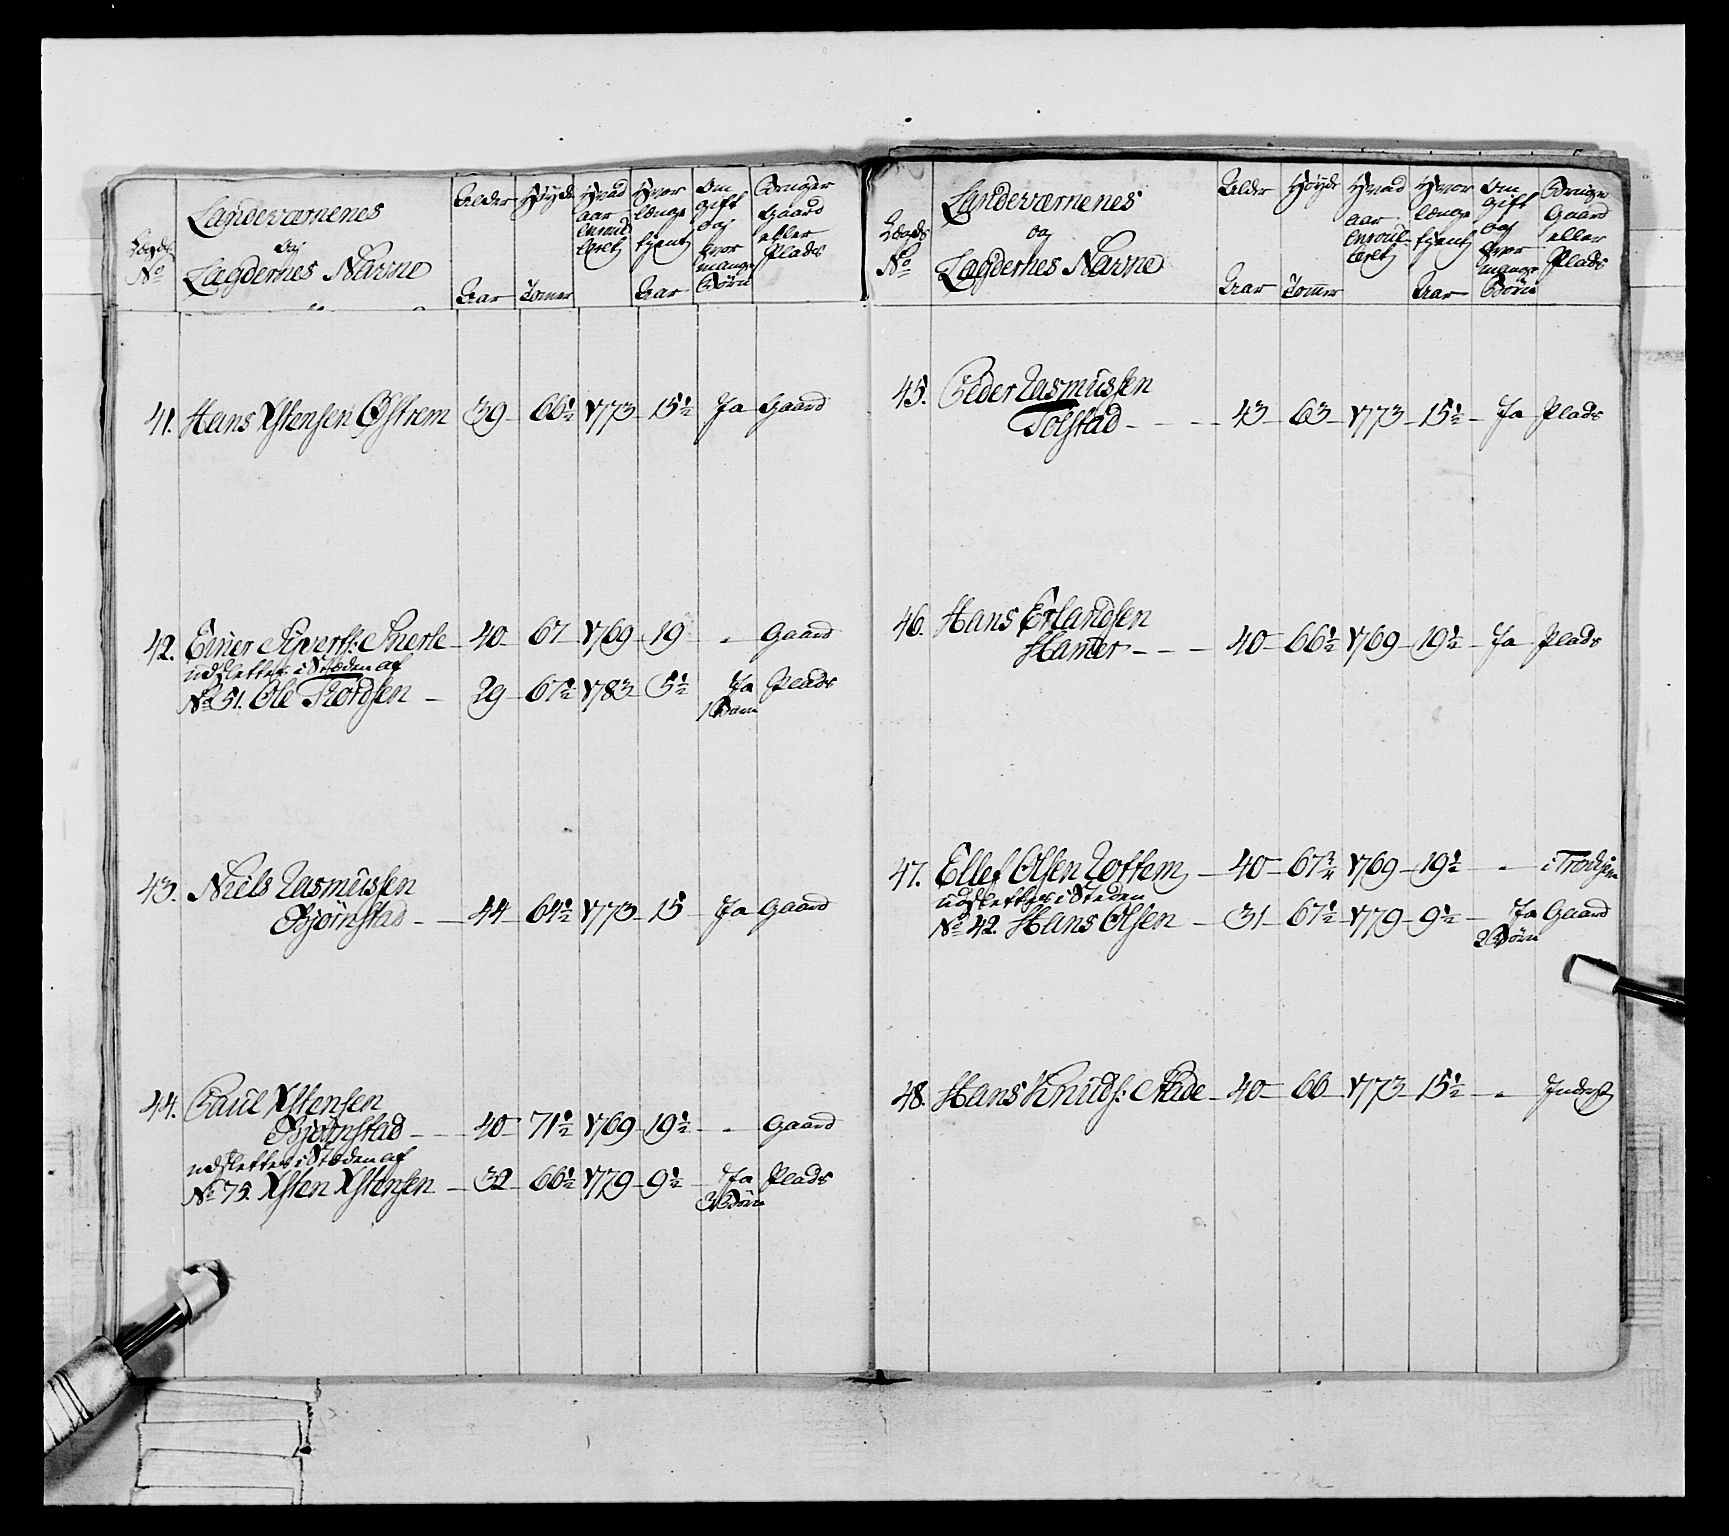 Lægds No
Landeværnenes og Lægdernes Navne
Alder Aar
Høyde Tomer
Hvad aar enroulleret
Hvor længe tient Aar
Om gift og hvor mange Børn
Bruger Gaard eller Plads
41. Hans Ystensen Østrem 39 66½ 1773 15½ Ja Gaard
42. Einer Siverts: 40 67 1769 19 " Gaard
udslettes i Stæden af
No 51. Ole Thordsen 29 67½ 1783 5½ Ja Plads
1 Barn
43. Niels Rasmussen
Bjørnstad 44 64½ 1773 15 Ja Gaard
44. Paul Ystensen
Bjørnstad 40 71½ 1769 19½ " Gaard
udslettes i Stæden af
No 75. Ysten Ystensen 32 66½ 1779 9½ Ja Plads
3 Børn
Lægds No
Landeværnenes og Lægdernes Navne
Alder Aar
Høyde Tommer
Hvad aar enroulleret
Hvor længe tient Aar
Om gift og hvor mange Børn
Bruger Gaard eller Plads
45. Peder Rasmussen
Tolstad 43 63 1773 15½ Ja Plads
46. Hans Erlandsen
Hamer 40 66½ 1769 19½ Ja Plads
47. Ellef Olsen Tottem 40 67¾ 1769 19½ " i Trondhjem
udslettes i Steden
No 42. Hans Olsen 31 67½ 1779 9½ Ja Gaard
2 Børn
48. Hans Knuds: 40 66 1773 15½ " Inderst